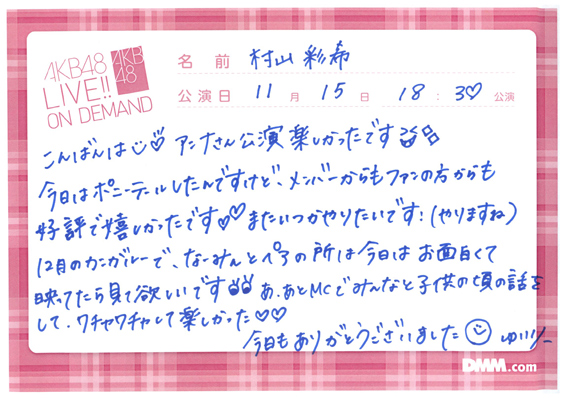 AKB48
LIVE!!
ON DEMAND
AKB
48
名前 村山彩希
公演日 11月 15日 18:30 公演
こんばんは アンナさん公演楽しかったです
今日はポニーテールしたんですけど、メンバーからもファンの方からも
好評で嬉しかったです♡♡またいつかやりたいです!(やりますね)
12月のカンガルーで、なーみんとペアの所は今日はお面白くて
映ってたら見て欲しいです あ、あとMCでみんなと子供の頃の話を
して、ワチャワチャして楽しかった♡♡
今日もありがとうございました ゆいりー
DMM.com